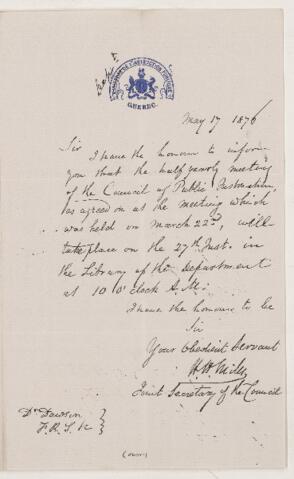 DEPARTEMENT DE L'INSTRUCTION PUBLIQUE
QUEBEC.
May 17 1876
Sir
I have the honour to inform
you that the half yearly meeting
of the Council of Public Instruction,
as agreed on at the meeting which
was held on March 22d, will
take place on the 27th Inst. in
the Library of the Department
at 10 O'clock A.M.
I have the honour to be
Sir
Your Obedient Servant
H. H. Miles
Joint Secretary of the Council
Dr Dawson
F.R.S. &c
(over)